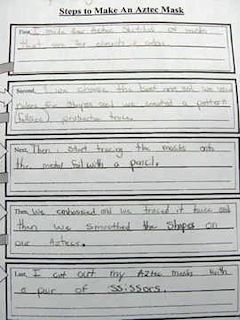 Steps to Make An Aztec Mask
First, I made four Aztec sketches of masks
that are for
Second, I we choose the best one and we used
rulers for shapes and we created a pattern
practice
Next, Then I start tracing the masks onto
the metal foil with a pencil.
Then, We embossed and we traced it twice and
then we smoothed the shapes on
our Aztecs.
Last, I cut out my Aztec masks with
a pair of SSiSSors.